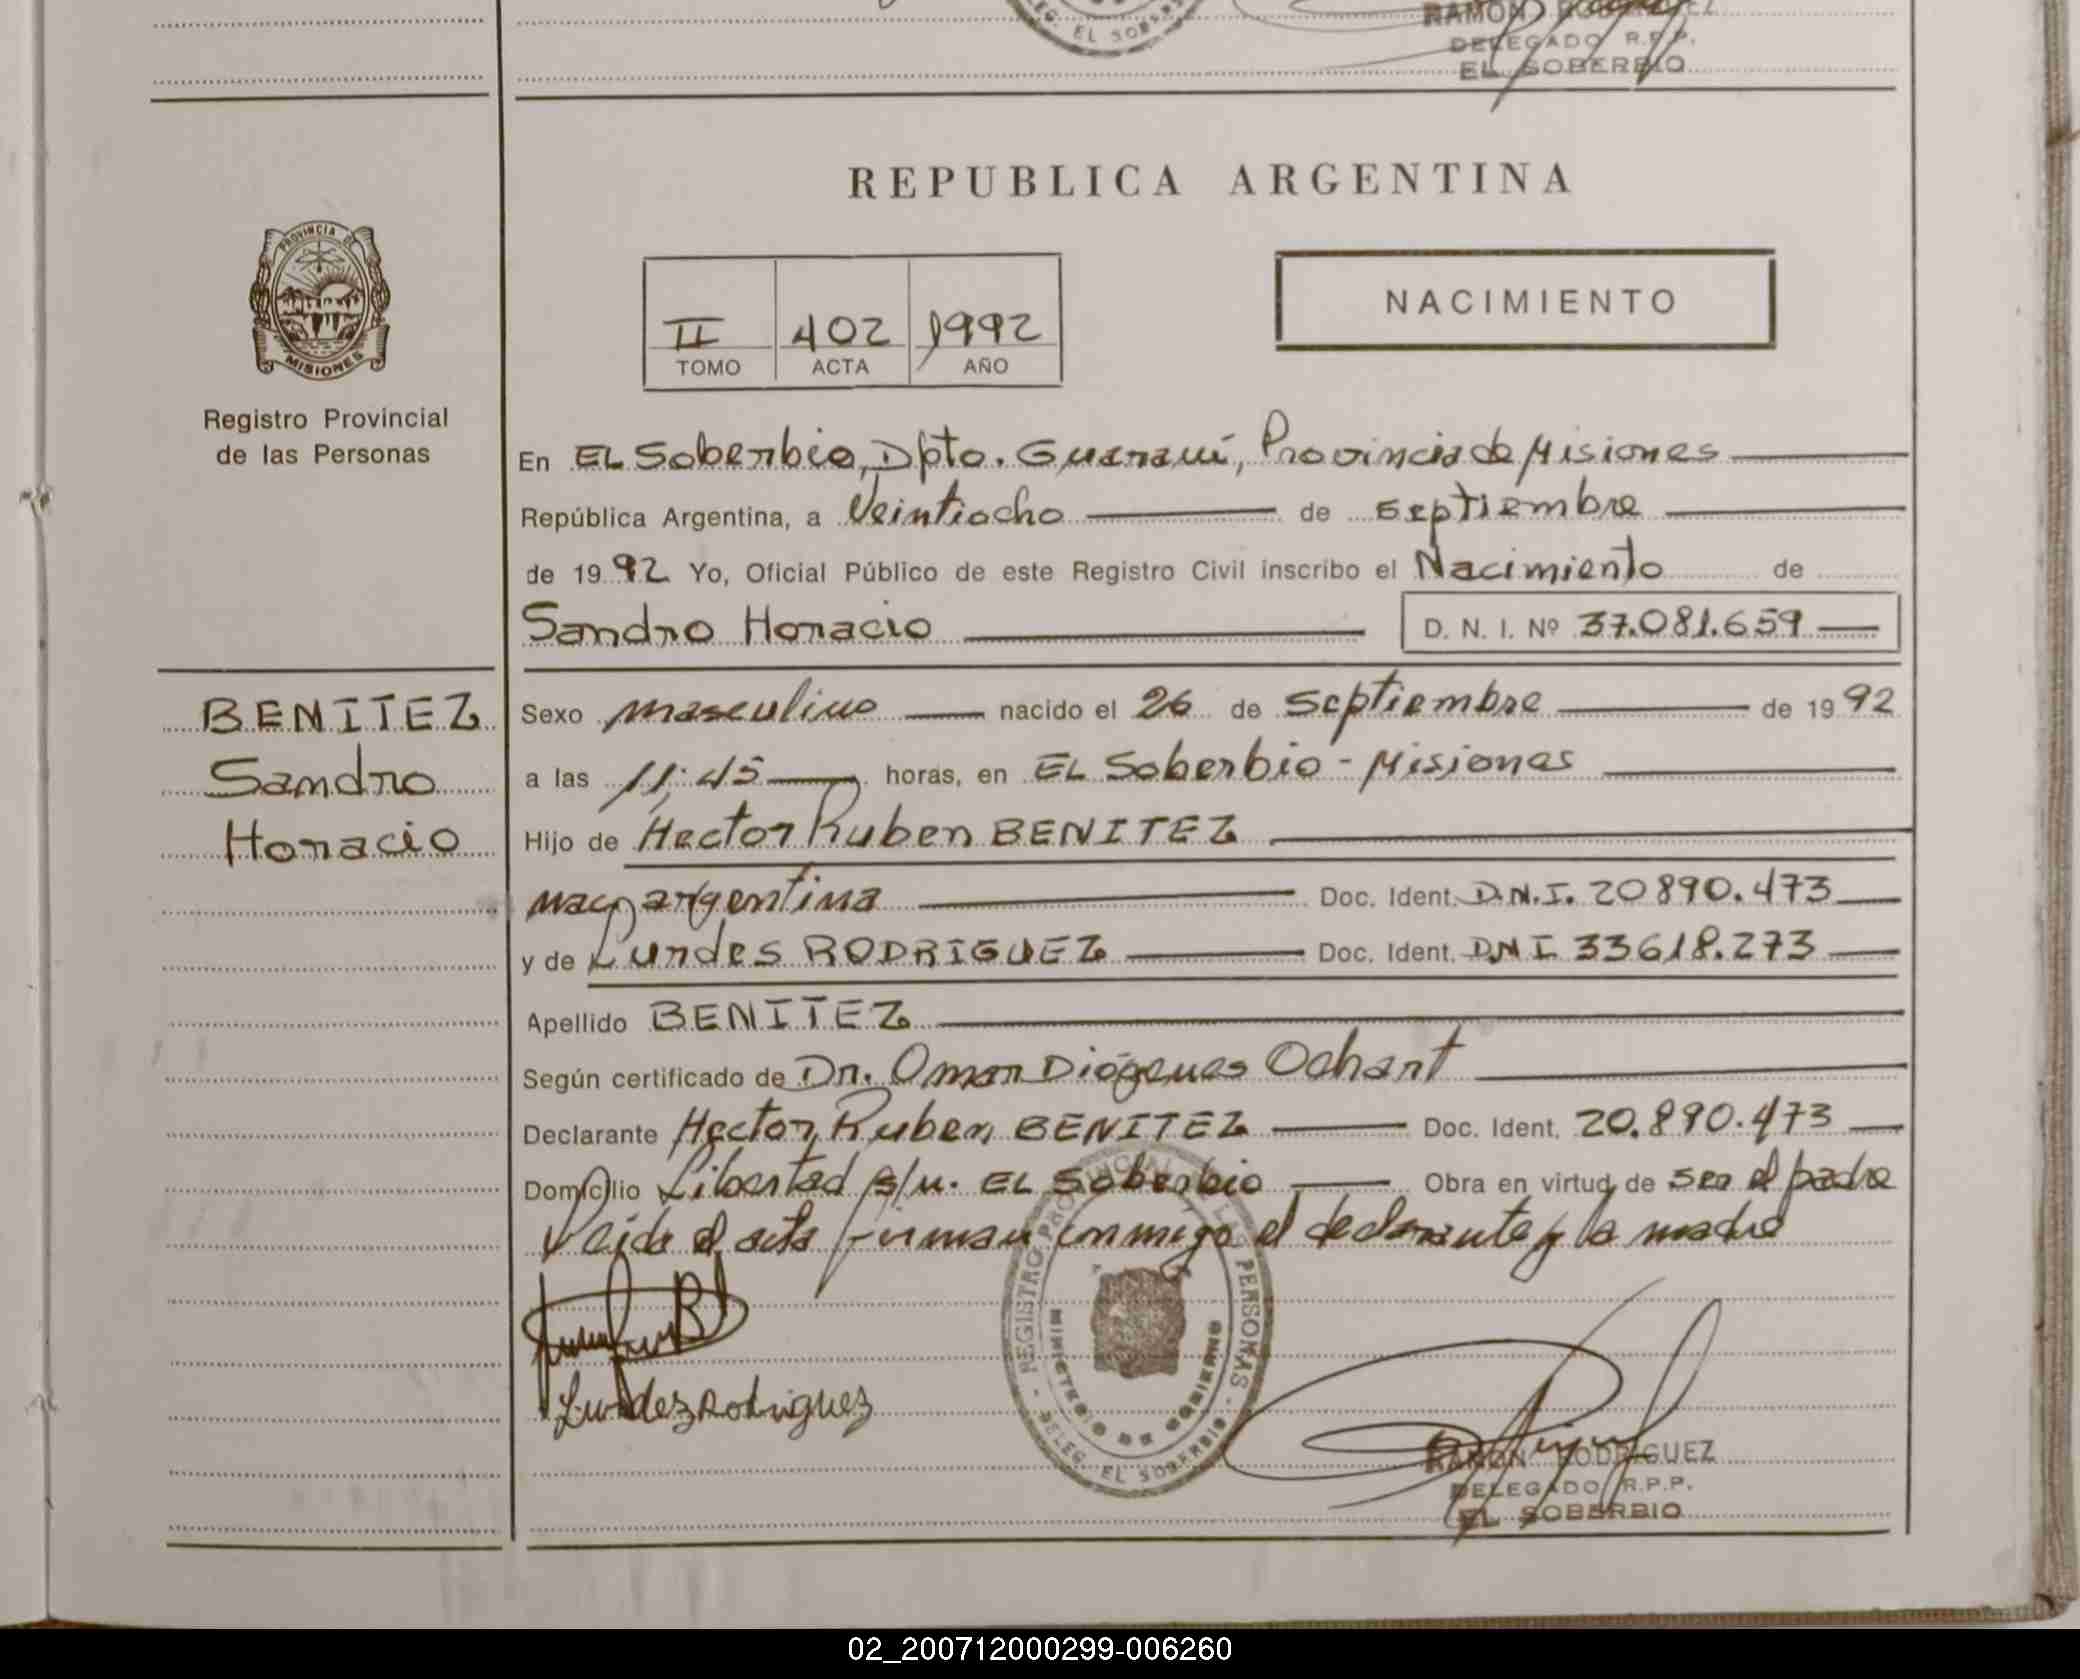 DEG. EL SOBERBIO
RAMON RODRIGUEZ
DELEGADO R.P.P.
EL SOBERBIO
REPUBLICA ARGENTINA
PROVINCIA DE
MISIONES
Registro Provincial
de las Personas
II 402 1992
TOMO ACTA AÑO
NACIMIENTO
En EL Soberbio, Dpto. Guaraní, Provincia de Misiones
República Argentina, a Veintiocho de Septiembre
de 1992 Yo, Oficial Público de este Registro Civil inscribo el Nacimiento de
Sandro Horacio D. N. I. Nº 37.081.659
BENITEZ
Sandro
Horacio
Sexo masculino nacido el 26 de Septiembre de 1992
a las 11:45 horas, en EL Soberbio - Misiones
Hijo de Hector Ruben BENITEZ
nac argentina Doc. Ident. D.N.I. 20890.473
y de Lurdes RODRIGUEZ Doc. Ident. DNI 33618.273
Apellido BENITEZ
Según certificado de Dr. Omar Diógenes Ochart
Declarante Hector Ruben BENITEZ Doc. Ident. 20.890.473
Domicilio Libertad s/n. EL Soberbio Obra en virtud de ser el padre
Leida el acta firman conmigo el declarante y la madre
Lurdez Rodriguez
REGISTRO PROVINCIAL DE LAS PERSONAS
MINISTERIO DE GOBIERNO
- DELEG. EL SOBERBIO -
RAMON RODRIGUEZ
DELEGADO R.P.P.
EL SOBERBIO
02_200712000299-006260